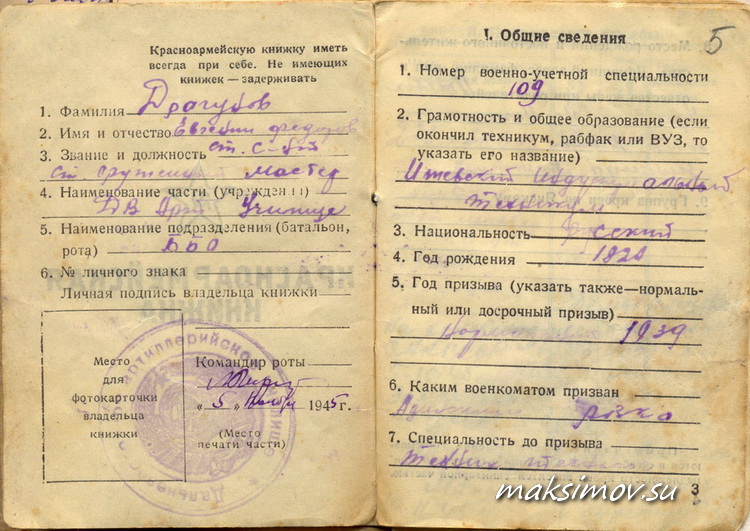 Красноармейскую книжку иметь
всегда при себе. Не имеющих
книжек — задерживать
1. Фамилия Драгубов
2. Имя и отчество Евгений Федоров
3. Звание и должность ст. с-нт
ст. оружейн мастер
4. Наименование части (учреждения)
ДВ Арт Училище
5. Наименование подразделения (батальон,
рота) ББО
6. № личного знака
Личная подпись владельца книжки
Место
для
фотокарточки
владельца
книжки
Командир роты
„5" Ноября 1945 г.
(Место
печати части)
5
I. Общие сведения
1. Номер военно-учетной специальности
109
2. Грамотность и общее образование (если
окончил техникум, рабфак или ВУЗ, то
указать его название)
Ижевский Индустриальный
техникум
3. Национальность русский
4. Год рождения 1820
5. Год призыва (указать также—нормаль-
ный или досрочный призыв)
1939
6. Каким военкоматом призван
7. Специальность до призыва
техник
3
maksimov.su